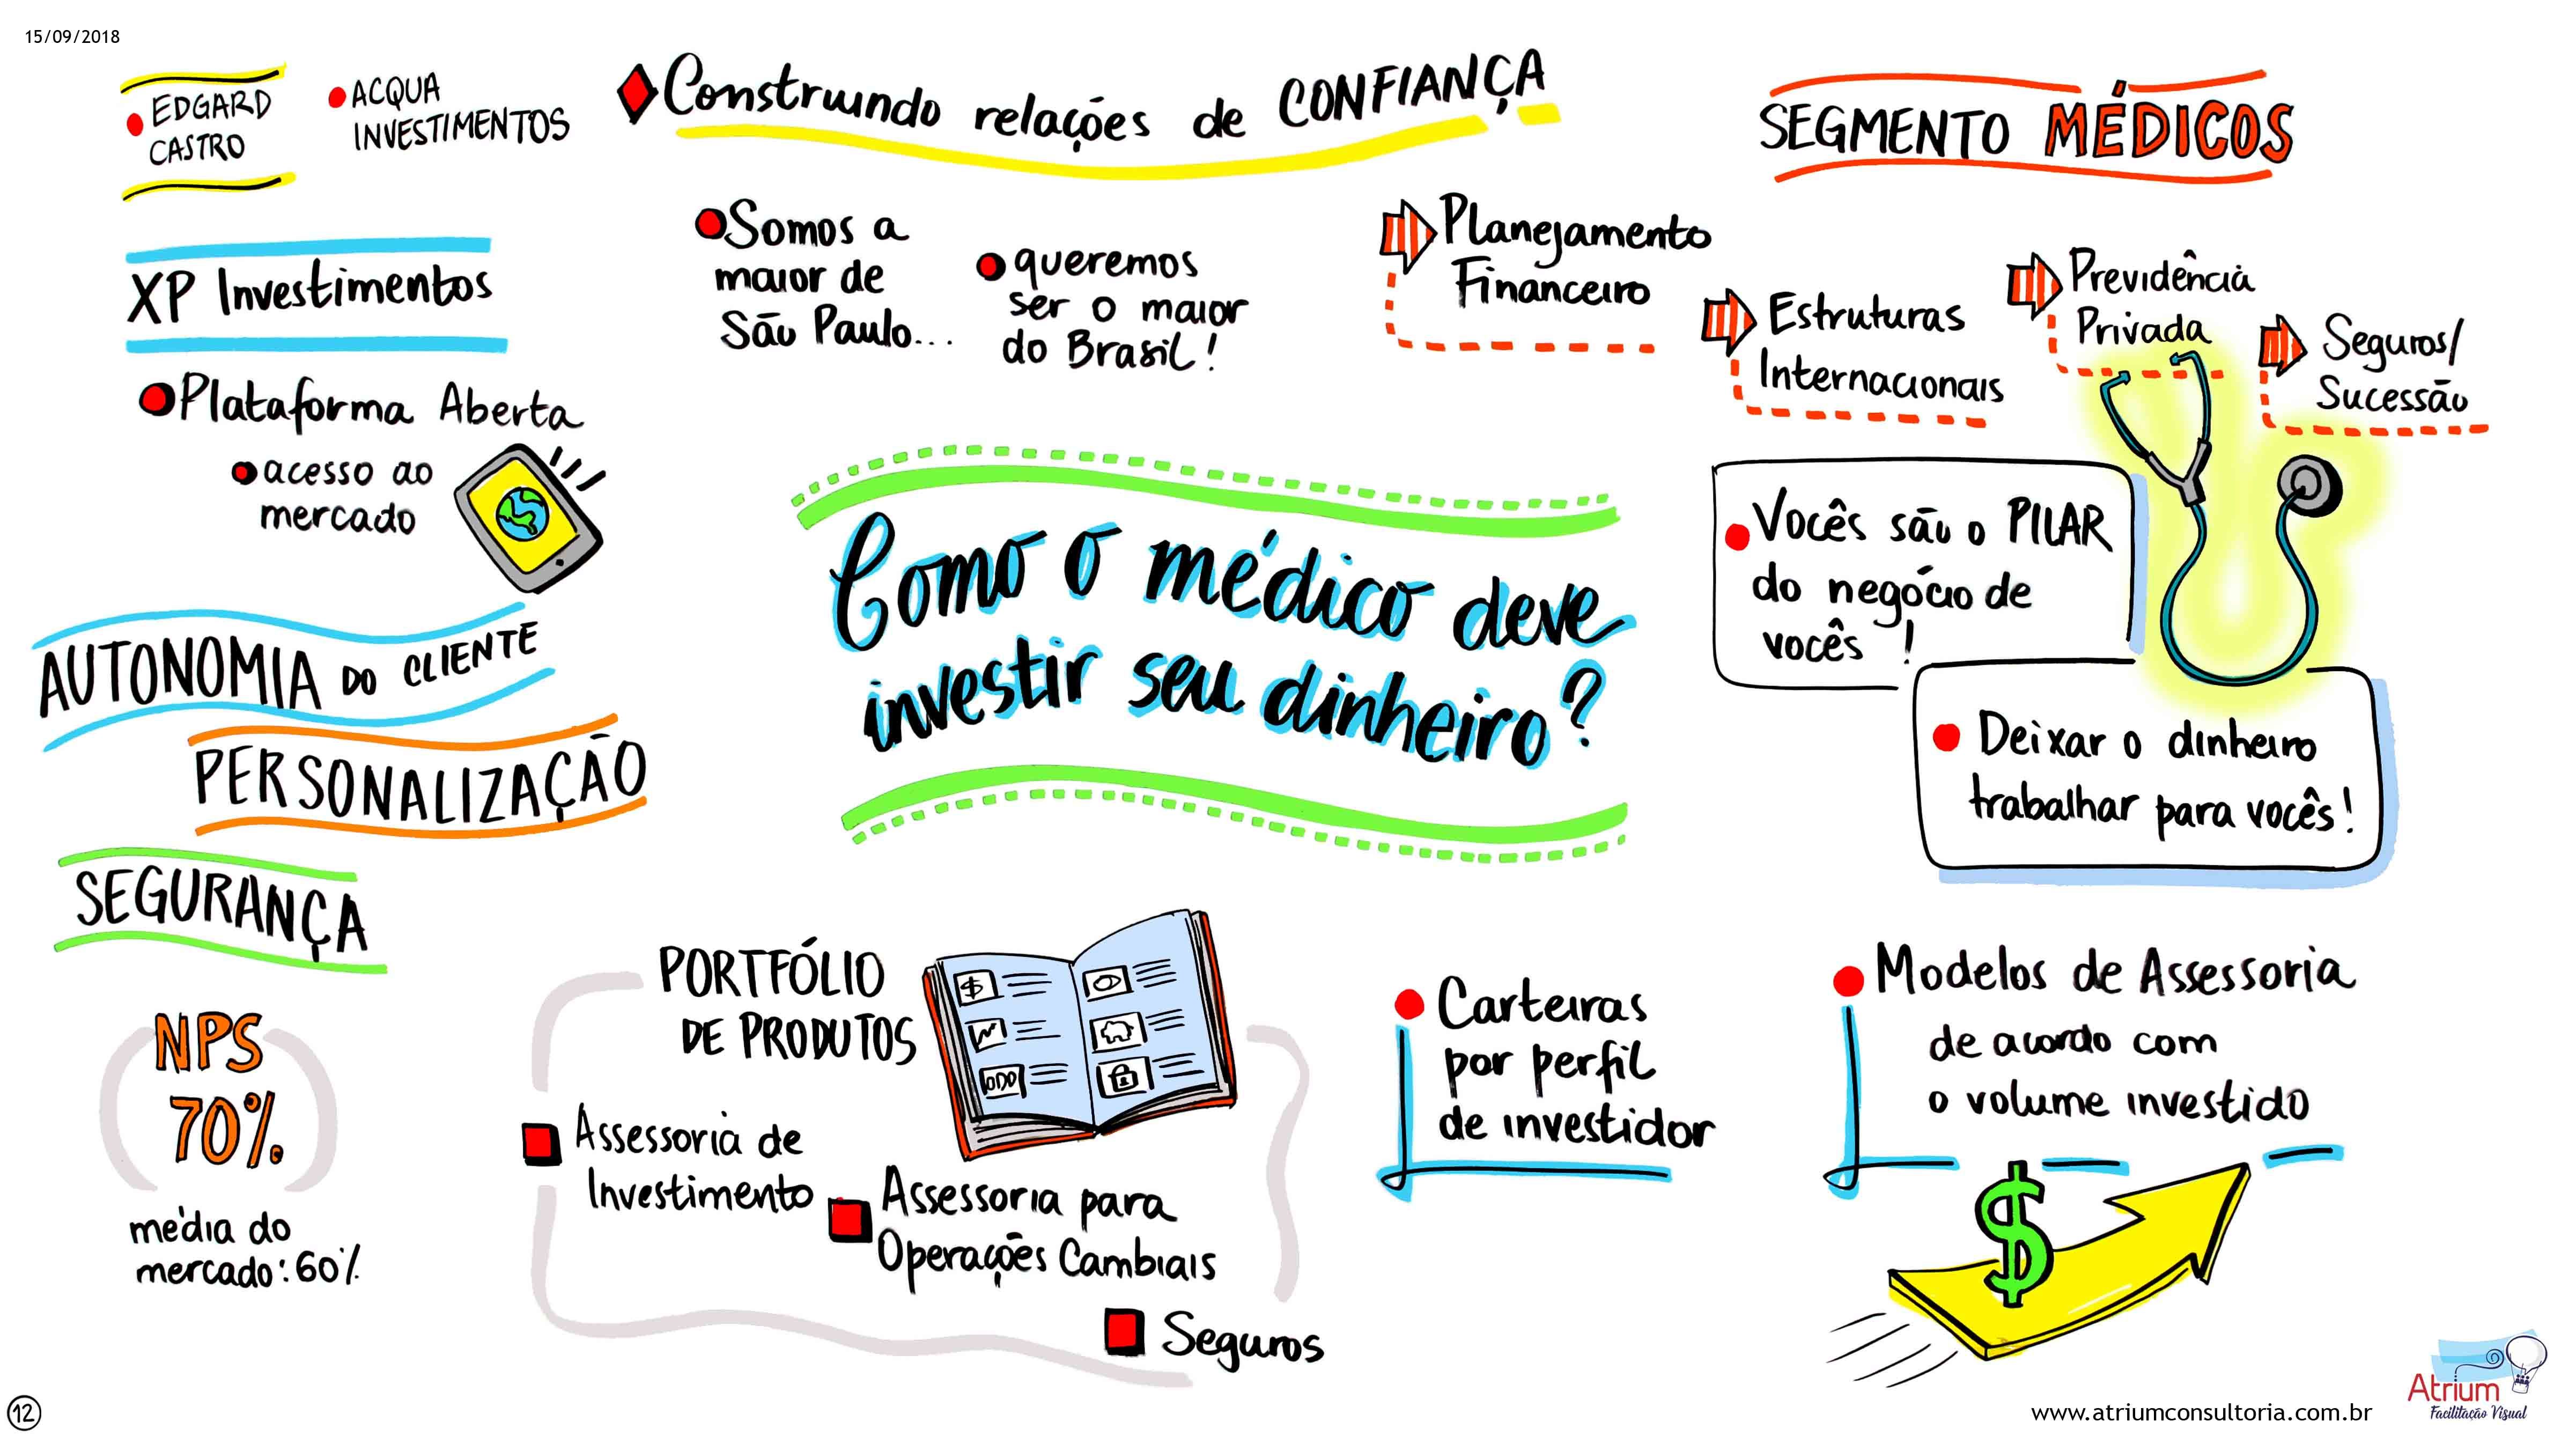 15/09/2018
EDGARD
CASTRO
ACQUA
INVESTIMENTOS
Construindo relações de CONFIANÇA
SEGMENTO MÉDICOS
XP Investimentos
Plataforma Aberta
acesso ao
mercado
Somos a
maior de
São Paulo...
queremos
ser o maior
do Brasil!
Planejamento
Financeiro
Estruturas
Internacionais
Previdência
Privada
Seguros/
Sucessão
AUTONOMIA DO CLIENTE
PERSONALIZAÇÃO
SEGURANÇA
Como o médico deve
investir seu dinheiro?
Vocês são o PILAR
do negócio de
vocês !
Deixar o dinheiro
trabalhar para vocês!
NPS
70%
média do
mercado: 60%
PORTFÓLIO
DE PRODUTOS
$
Assessoria de
Investimento
Assessoria para
Operações Cambiais
Seguros
Carteiras
por perfil
de investidor
Modelos de Assessoria
de acordo com
o volume investido
$
12
www.atriumconsultoria.com.br
Atrium
Facilitação Visual